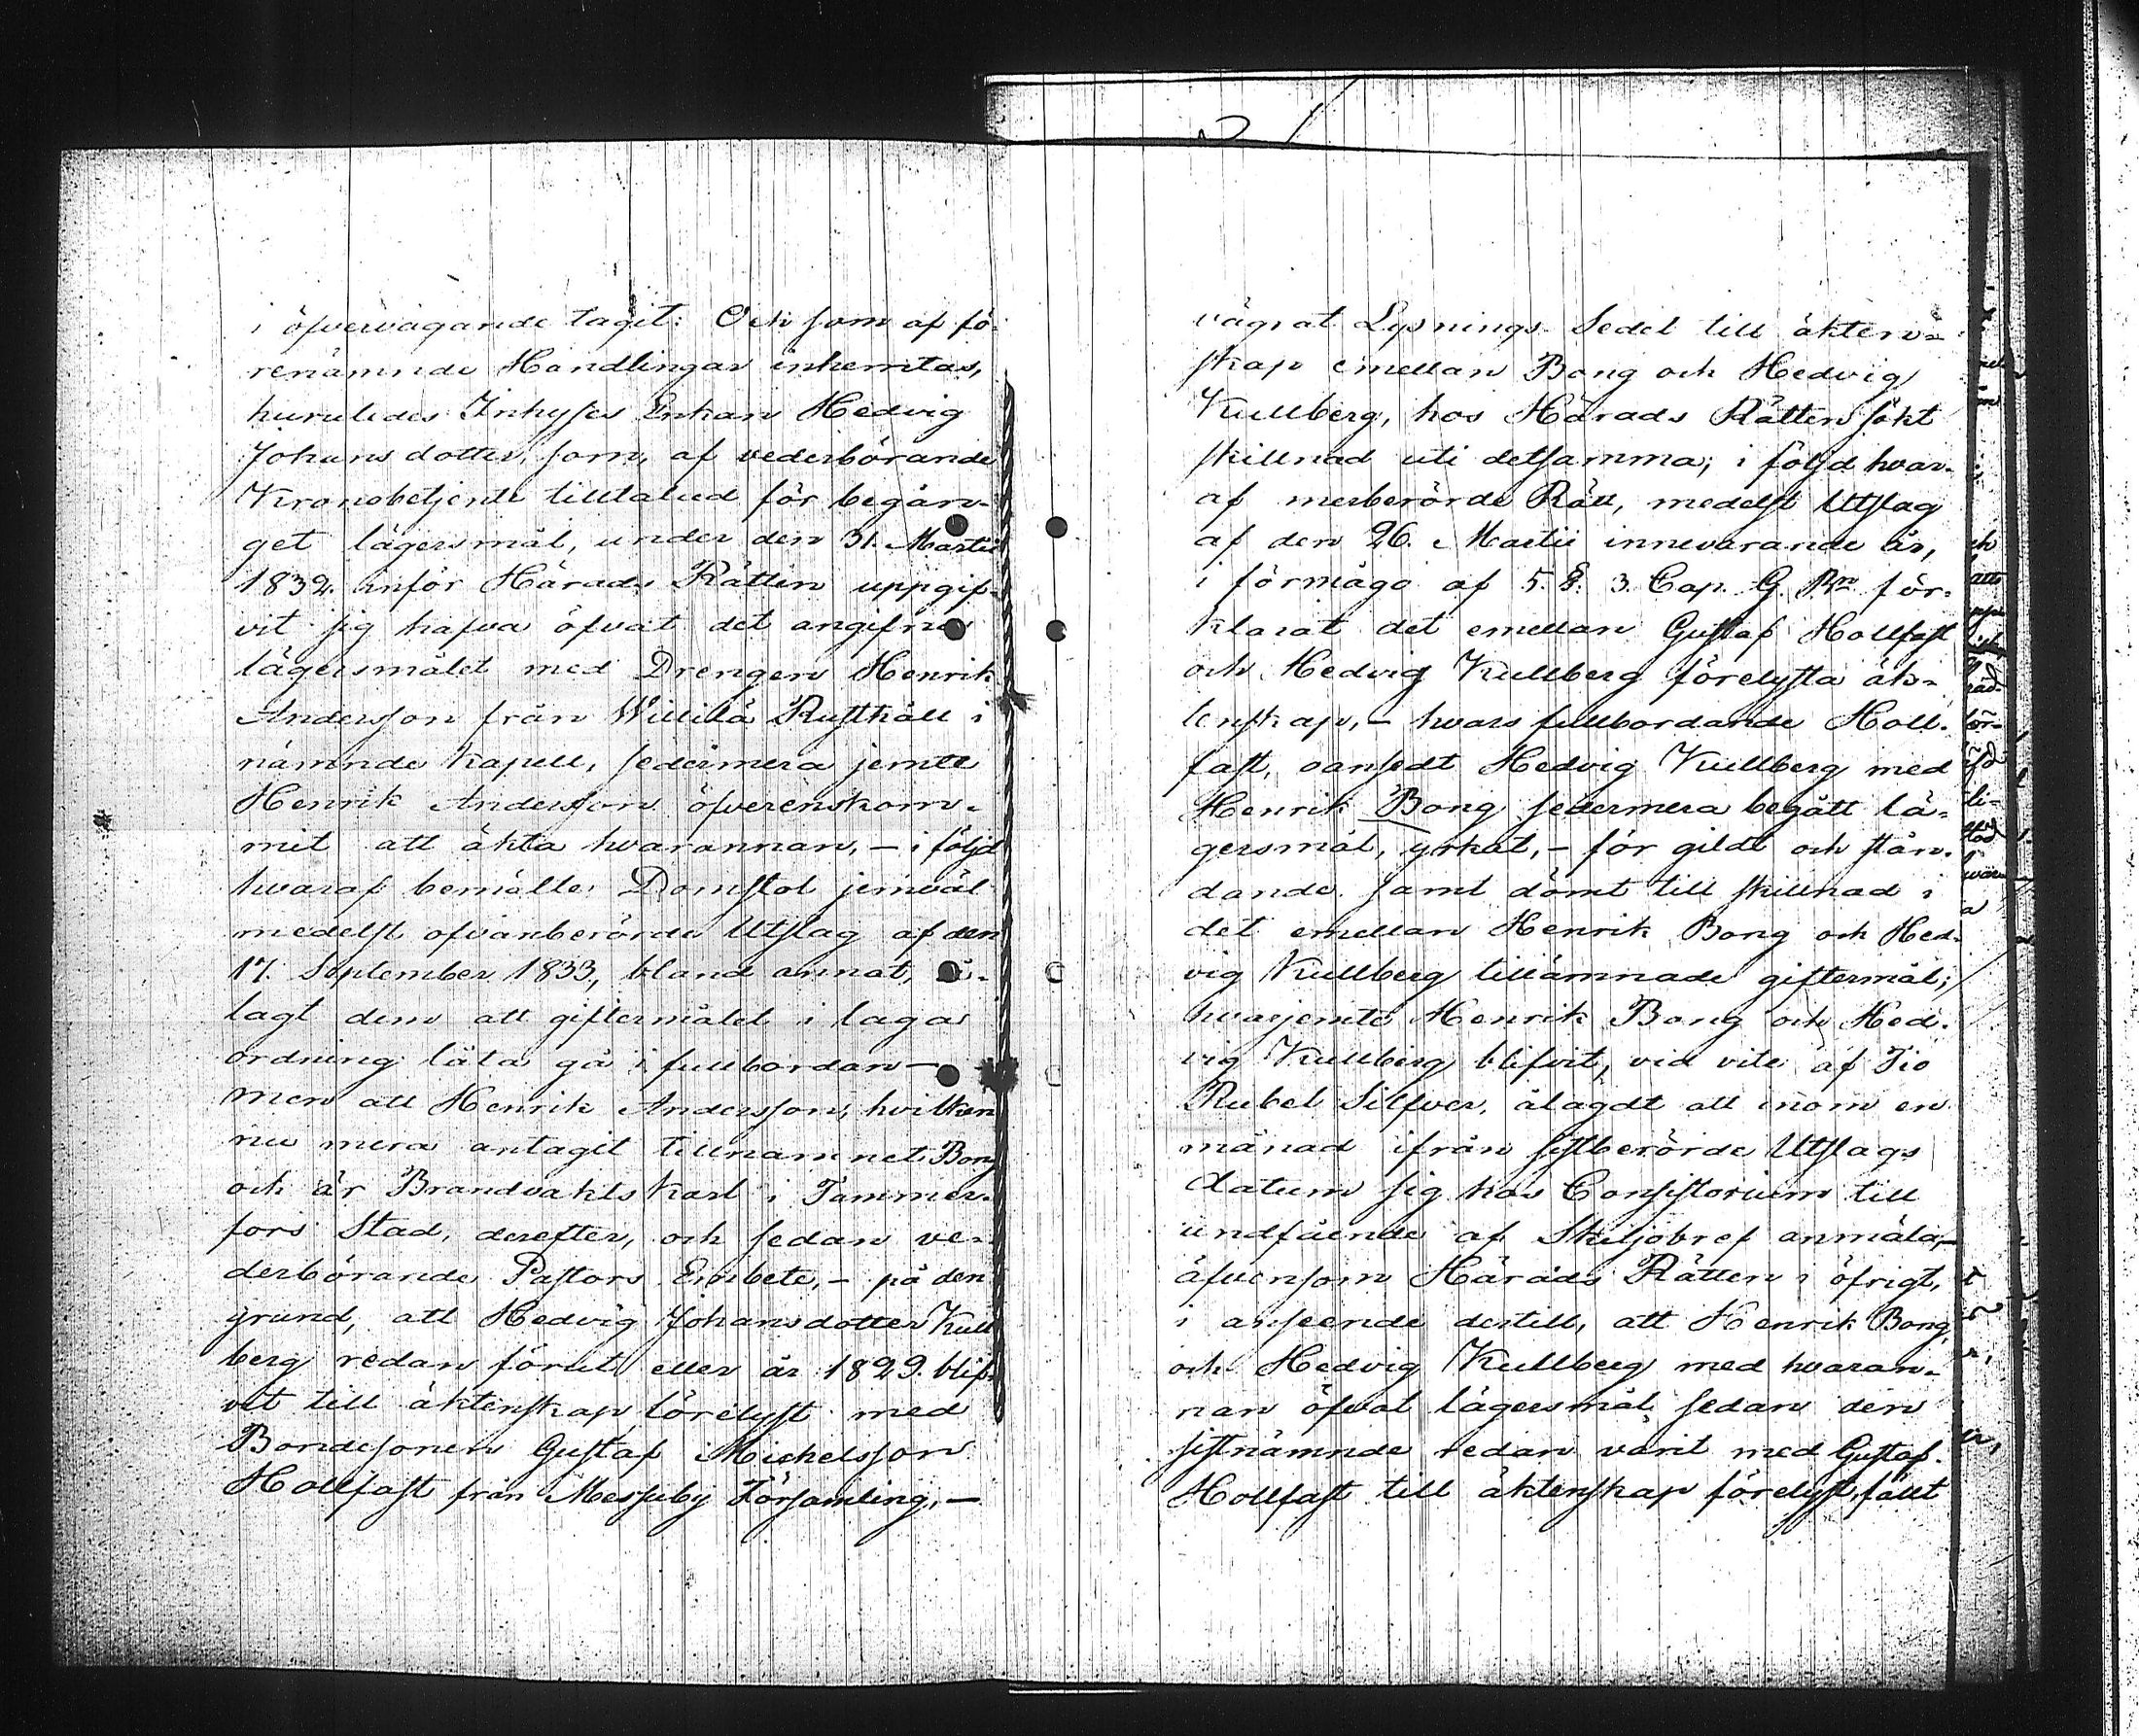 i öfvervägande tagit: Och som af fö-
renämnde Handlingar inhemtas,
huruledes Inhyses Enkan Hedvig
Johansdotter, som, af vederbörande
Kronobetjente tilltalad för begån-
get lägersmål, under den 31. Martii
1832. inför Härads Rätten uppgif-
vit sig hafva öfvat det angifne
lägersmålet med Drengen Henrik
Andersson från Willilä Rusthåll i
nämnde Kapell, sedermera jemte
Henrik Andersson öfverenskom-
mit att äkta hvarannan, - i följd
hvaraf bemälte Domstol jemväl
medelst ofvanberörde Utslag af den
17. September 1833, bland annat, å-
lagt dem att giftermålet i laga
ordning låta gå i fullbordan -
men att Henrik Andersson, hvilken
nu mera antagit tillnamnet Bong
och är Brandvakts Karl i Tammer-
fors Stad, derefter, och sedan ve-
derbörande Pastors Embete, - på den
grund, att Hedvig Johansdotter Kull
berg redan förut eller år 1829. blif-
vit till äktenskap lörelyst med
Bondesonen Gustaf Michelsson
Hollfast från Messuby Församling, -
vägrat Lysnings Sedel till äkten-
skap emellan Bong och Hedvig
Kullberg, hos Härads Rätten sökt
skillnad uti detsamma; i följd hvar-
af merberörde Rätt, medelst Utslag
af den 26. Martii innevarande år,
i förmågo af 5. §. 3. Cap. G. Bn för-
klarat det emellan Gustaf Hollfast
och Hedvig Kullberg förelysta äk-
tenskap, - hvars fullbordande Holl-
fast, oansedt Hedvig Kullberg med
Henrik Bong sedermera begått lä-
gersmål, yrkat, - för gildt och stån-
dande samt dömt till skillnad i
det emellan Henrik Bong och Hed-
vig Kullberg tillämnade giftermål;
hvarjemte Henrik Bong och Hed-
vig Kullberg blifvit, vid vite af Tio
Rubel Silfver, ålagdt att inom en
månad ifrån sistberörde Utslags
datum sig hos Consistorium till
undfående af Skiljobref anmäla, -
äfvensom Härads Rätten i öfrigt,
i anseende dertill, att Henrik Bong,
och Hedvig Kullberg med hvaran-
nan öfvat lägersmål sedan den
sistnämnde redan varit med Gustaf
Hollfast till äktenskap förelyst, fällt